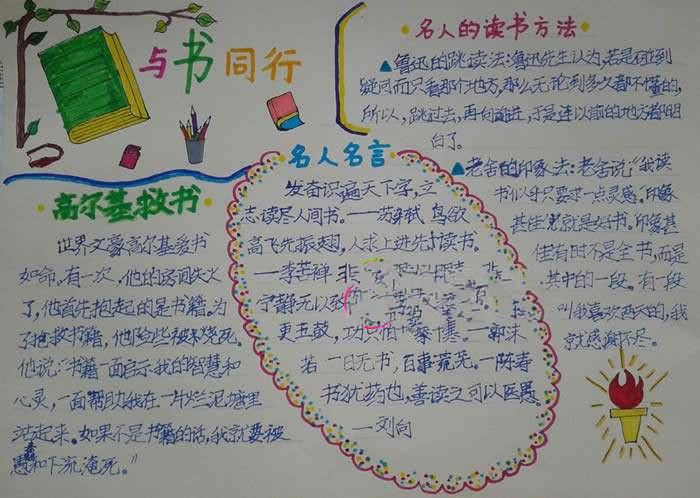 与书同行
高尔基救书
世界文豪高尔基爱书
如命,有一次,他的房间失火
了,他首先抱起的是书籍,为
了抢救书籍,他险些被烧死,
他说:"书籍一面启示我的智慧和
心灵,一面帮助我在一片烂泥塘里
站起来。如果不是书籍的话,我就要被
愚和下流淹死。"
名人名言
发奋识遍天下字,立
志读尽人间书。——苏轼 鸟欲
高飞先振翅,人求上进先读书。
—李苦禅 非
宁静无以致
更五鼓,功
若一日无书,百事荒芜。—陈寿
书犹药也,善读之可以医愚
—刘向
名人的读书方法
▲鲁迅的跳读法:鲁迅先生认为,若是碰到
疑问而只看那个地方,那么无论到多久都不懂的,
所以,跳过去,再向前进,于是连以前的地方都明
白了。
▲老舍的印象法:老舍说"我读
书似乎只要求一点灵感。"印象
甚佳便就是好书。印象甚
佳有时不是全书,而是
其中的一段。有一段
叫我喜欢两天的,我
就感谢不尽。